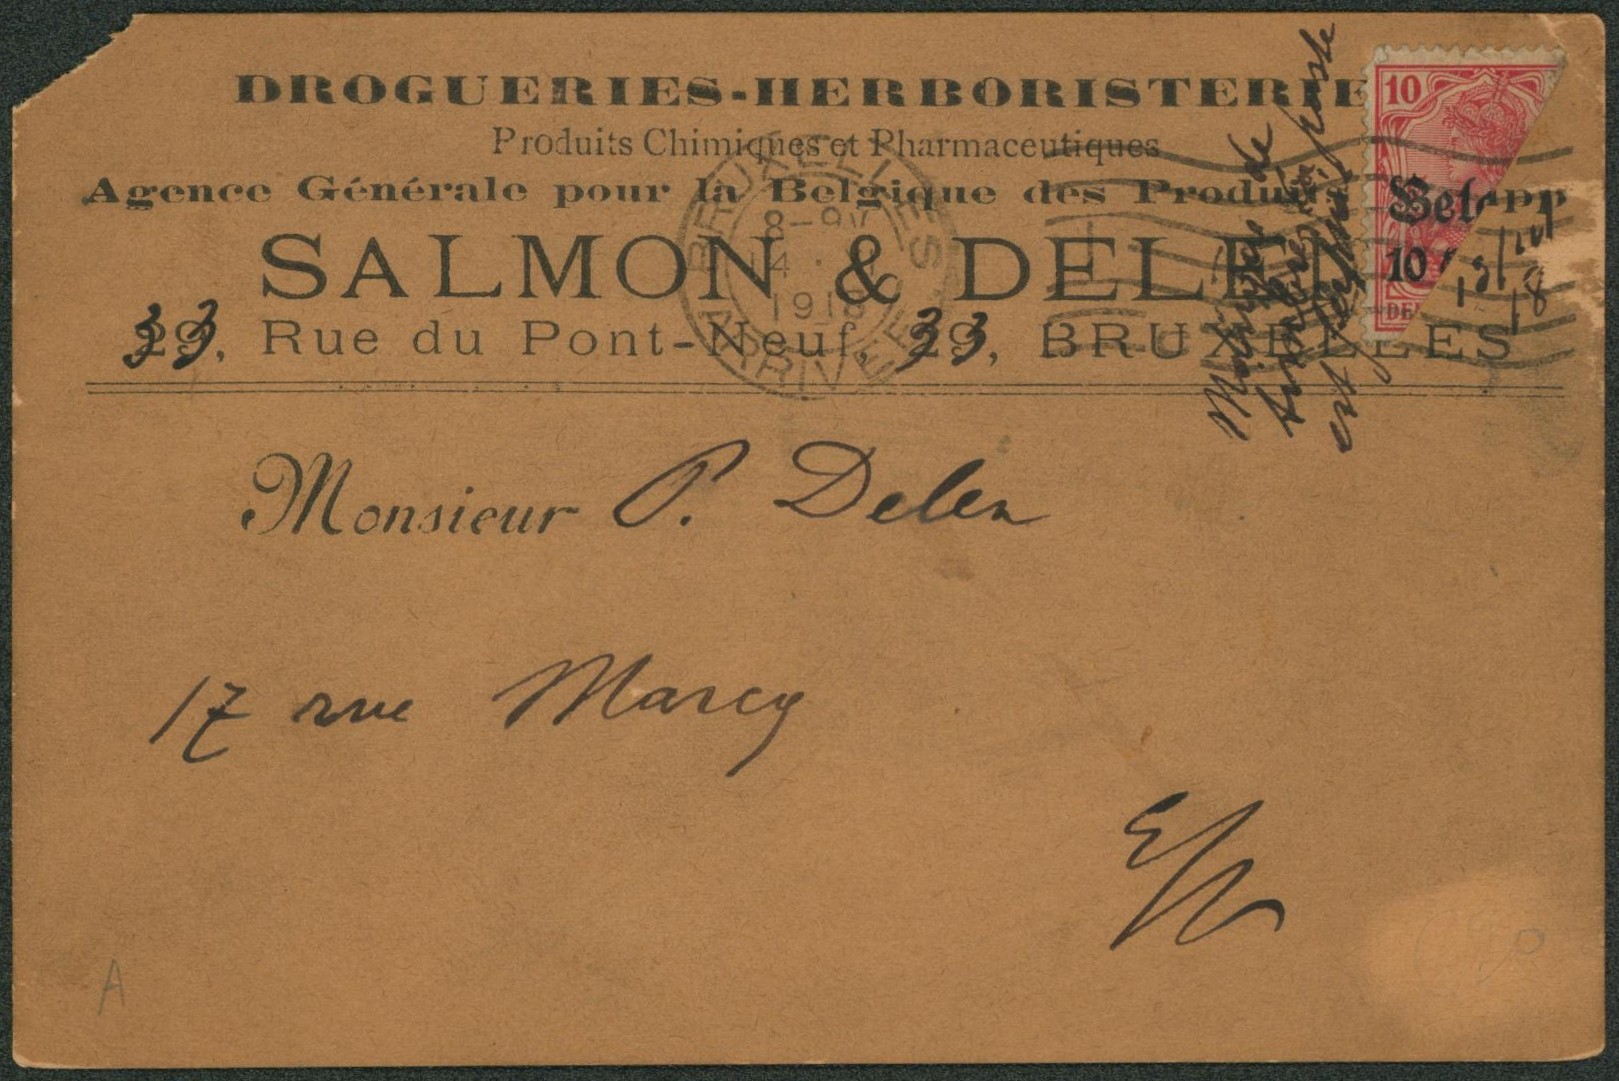 DROGUERIES-HERBORISTERIE
Produits Chimiques et Pharmaceutiques
Agence Générale pour la Belgique des Produits
SALMON & DELEN
33, Rue du Pont-Neuf, 33, BRUXELLES
BRUXELLES
8-9
14
1918
ARRIVÉE
10
Belg
10
DE
Moitié de
timbre
est perdu poste
Monsieur P. Delen
17 rue Marcq
E/V
A